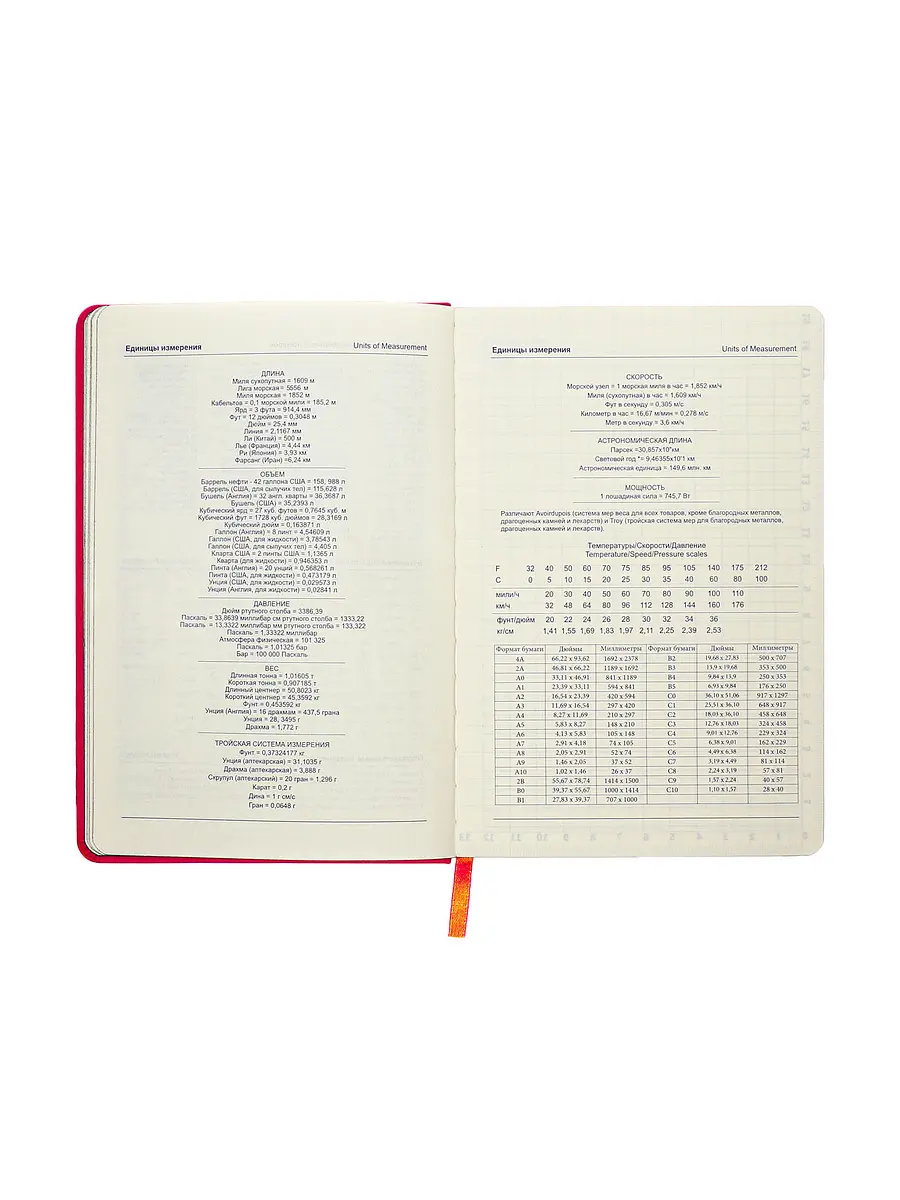 Единицы измерения Units of Measurement
ДЛИНА
Миля сухопутная = 1609 м
Лига морская = 5556 м
Миля морская = 1852 м
Кабельтов = 0,1 морской мили = 185,2 м
Ярд = 3 фута = 914,4 мм
Фут = 12 дюймов = 0,3048 м
Дюйм = 25,4 мм
Линия = 2,1167 мм
Ли (Китай) = 500 м
Лье (Франция) = 4,44 км
Ри (Япония) = 3,93 км
Фарсанг (Иран) =6,24 км
ОБЪЕМ
Баррель нефти - 42 галлона США = 158, 988 л
Баррель (США, для сыпучих тел) = 115,628 л
Бушель (Англия) = 32 англ. кварты = 36,3687 л
Бушель (США) = 35,2393 л
Кубический ярд = 27 куб. футов = 0,7645 куб. м
Кубический фут = 1728 куб. дюймов = 28,3169 л
Кубический дюйм = 0,163871 л
Галлон (Англия) = 8 пинт = 4,54609 л
Галлон (США, для жидкости) = 3,78543 л
Галлон (США, для сыпучих тел) = 4,405 л
Кларта США = 2 пинты США = 1,1365 л
Кварта (для жидкости) = 0,946353 л
Пинта (Англия) = 20 унций = 0,568261 л
Пинта (США, для жидкости) = 0,473179 л
Унция (США, для жидкости) = 0,029573 л
Унция (Англия, для жидкости) = 0,02841 л
ДАВЛЕНИЕ
Дюйм ртутного столба = 3386,39
Паскаль = 33,8639 миллибар см ртутного столба = 1333,22
Паскаль = 13,3322 миллибар мм ртутного столба = 133,322
Паскаль = 1,33322 миллибар
Атмосфера физическая = 101 325
Паскаль = 1,01325 бар
Бар = 100 000 Паскаль
ВЕС
Длинная тонна = 1,01605 т
Короткая тонна = 0,907185 т
Длинный центнер = 50,8023 кг
Короткий центнер = 45,3592 кг
Фунт = 0,453592 кг
Унция (Англия) = 16 драхмам = 437,5 грана
Унция = 28, 3495 г
Драхма = 1,772 г
ТРОЙСКАЯ СИСТЕМА ИЗМЕРЕНИЯ
Фунт = 0,37324177 кг
Унция (аптекарская) = 31,1035 г
Драхма (аптекарская) = 3,888 г
Скрупул (аптекарский) = 20 гран = 1,296 г
Карат = 0,2 г
Дина = 1 г см/с
Гран = 0,0648 г
Единицы измерения Units of Measurement
СКОРОСТЬ
Морской узел = 1 морская миля в час = 1,852 км/ч
Миля (сухопутная) в час = 1,609 км/ч
Фут в секунду = 0,305 м/с
Километр в час = 16,67 м/мин = 0,278 м/с
Метр в секунду = 3,6 км/ч
АСТРОНОМИЧЕСКАЯ ДЛИНА
Парсек =30,857х10*км
Световой год *= 9,46355х10*1 км
Астрономическая единица = 149,6 млн. км
МОЩНОСТЬ
1 лошадиная сила = 745,7 Вт
Различают Avoirdupois (система мер веса для всех товаров, кроме благородных металлов,
драгоценных камней и лекарств) и Troy (тройская система мер для благородных металлов,
драгоценных камней и лекарств).
Температуры/Скорости/Давление
Temperature/Speed/Pressure scales
F 32 40 50 60 70 75 85 95 105 140 175 212
C 0 5 10 15 20 25 30 35 40 60 80 100
мили/ч 20 30 40 50 60 70 80 90 100 110
км/ч 32 48 64 80 96 112 128 144 160 176
фунт/дюйм 20 22 24 26 28 30 32 34 36
кг/см 1,41 1,55 1,69 1,83 1,97 2,11 2,25 2,39 2,53
Формат бумаги Дюймы Миллиметры Формат бумаги Дюймы Миллиметры
4A 66,22 x 93,62 1692 x 2378 B2 19,68 x 27,83 500 x 707
2A 46,81 x 66,22 1189 x 1692 B3 13,9 x 19,68 353 x 500
A0 33,11 x 46,91 841 x 1189 B4 9,84 x 13,9 250 x 353
A1 23,39 x 33,11 594 x 841 B5 6,93 x 9,84 176 x 250
A2 16,54 x 23,39 420 x 594 C0 36,10 x 51,06 917 x 1297
A3 11,69 x 16,54 297 x 420 C1 25,51 x 36,10 648 x 917
A4 8,27 x 11,69 210 x 297 C2 18,03 x 36,10 458 x 648
A5 5,83 x 8,27 148 x 210 C3 12,76 x 18,03 324 x 458
A6 4,13 x 5,83 105 x 148 C4 9,01 x 12,76 229 x 324
A7 2,91 x 4,18 74 x 105 C5 6,38 x 9,01 162 x 229
A8 2,05 x 2,91 52 x 74 C6 4,49 x 6,38 114 x 162
A9 1,46 x 2,05 37 x 52 C7 3,19 x 4,49 81 x 114
A10 1,02 x 1,46 26 x 37 C8 2,24 x 3,19 57 x 81
2B 55,67 x 78,74 1414 x 1500 C9 1,57 x 2,24 40 x 57
B0 39,37 x 55,67 1000 x 1414 C10 1,10 x 1,57 28 x 40
B1 27,83 x 39,37 707 x 1000